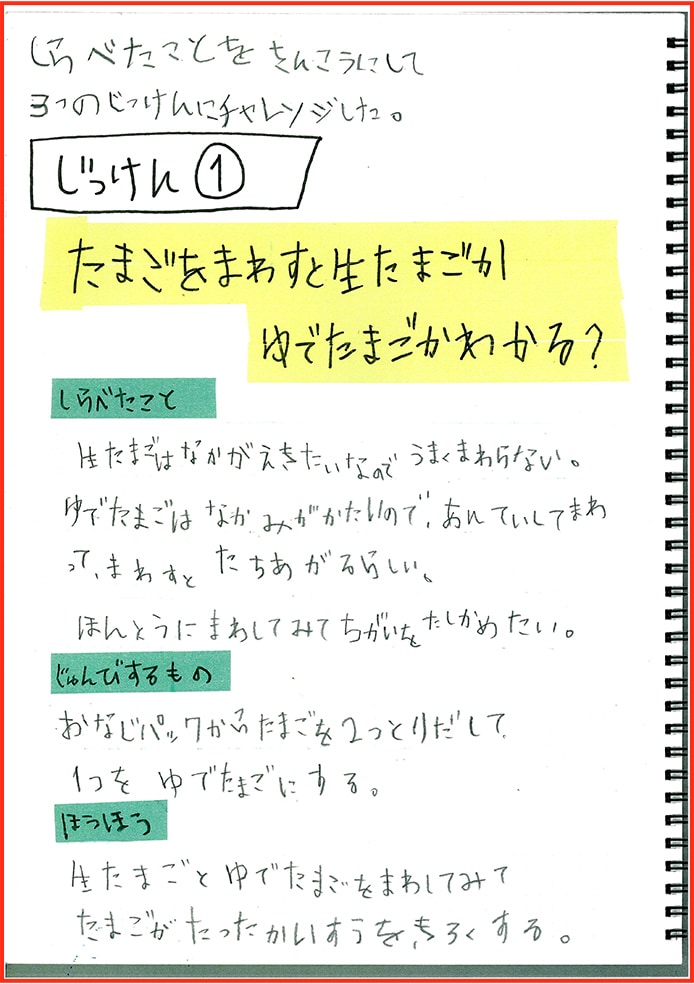 しらべたことをさんこうにして
3つのじっけんにチャレンジした。
じっけん①
たまごをまわすと生たまごか
ゆでたまごかわかる?
しらべたこと
生たまごはなかがえきたいなので うまくまわらない。
ゆでたまごは なかみがかたいので、あんていしてまわ
って、まわすと たちあがるらしい。
ほんとうにまわしてみてちがいをたしかめたい。
じゅんびするもの
おなじパックからたまごを2つとりだして
1つを ゆでたまごにする。
ほうほう
生たまごと ゆでたまごをまわしてみて
たまごが たったかいすうを きろくする。